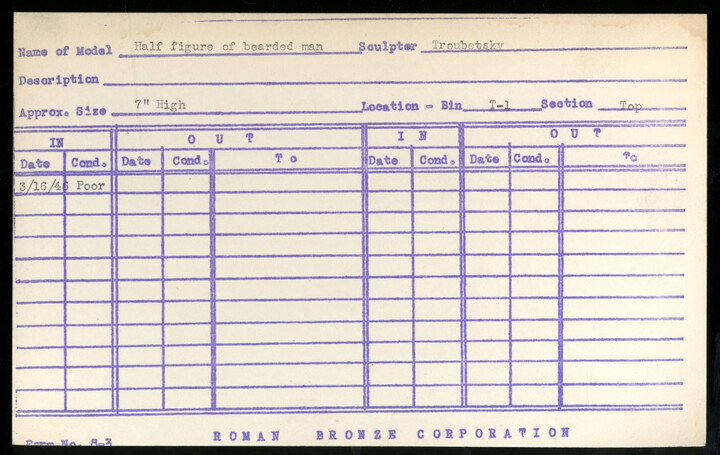 Name of Model Half figure of bearded man Sculptor Troubetsky
Description
Approx. Size 7" High Location - Bin T-1 Section Top
IN OUT IN OUT
Date Cond. Date Cond. To Date Cond. Date Cond. To
3/16/46 Poor
Form No. 8-3 ROMAN BRONZE CORPORATION